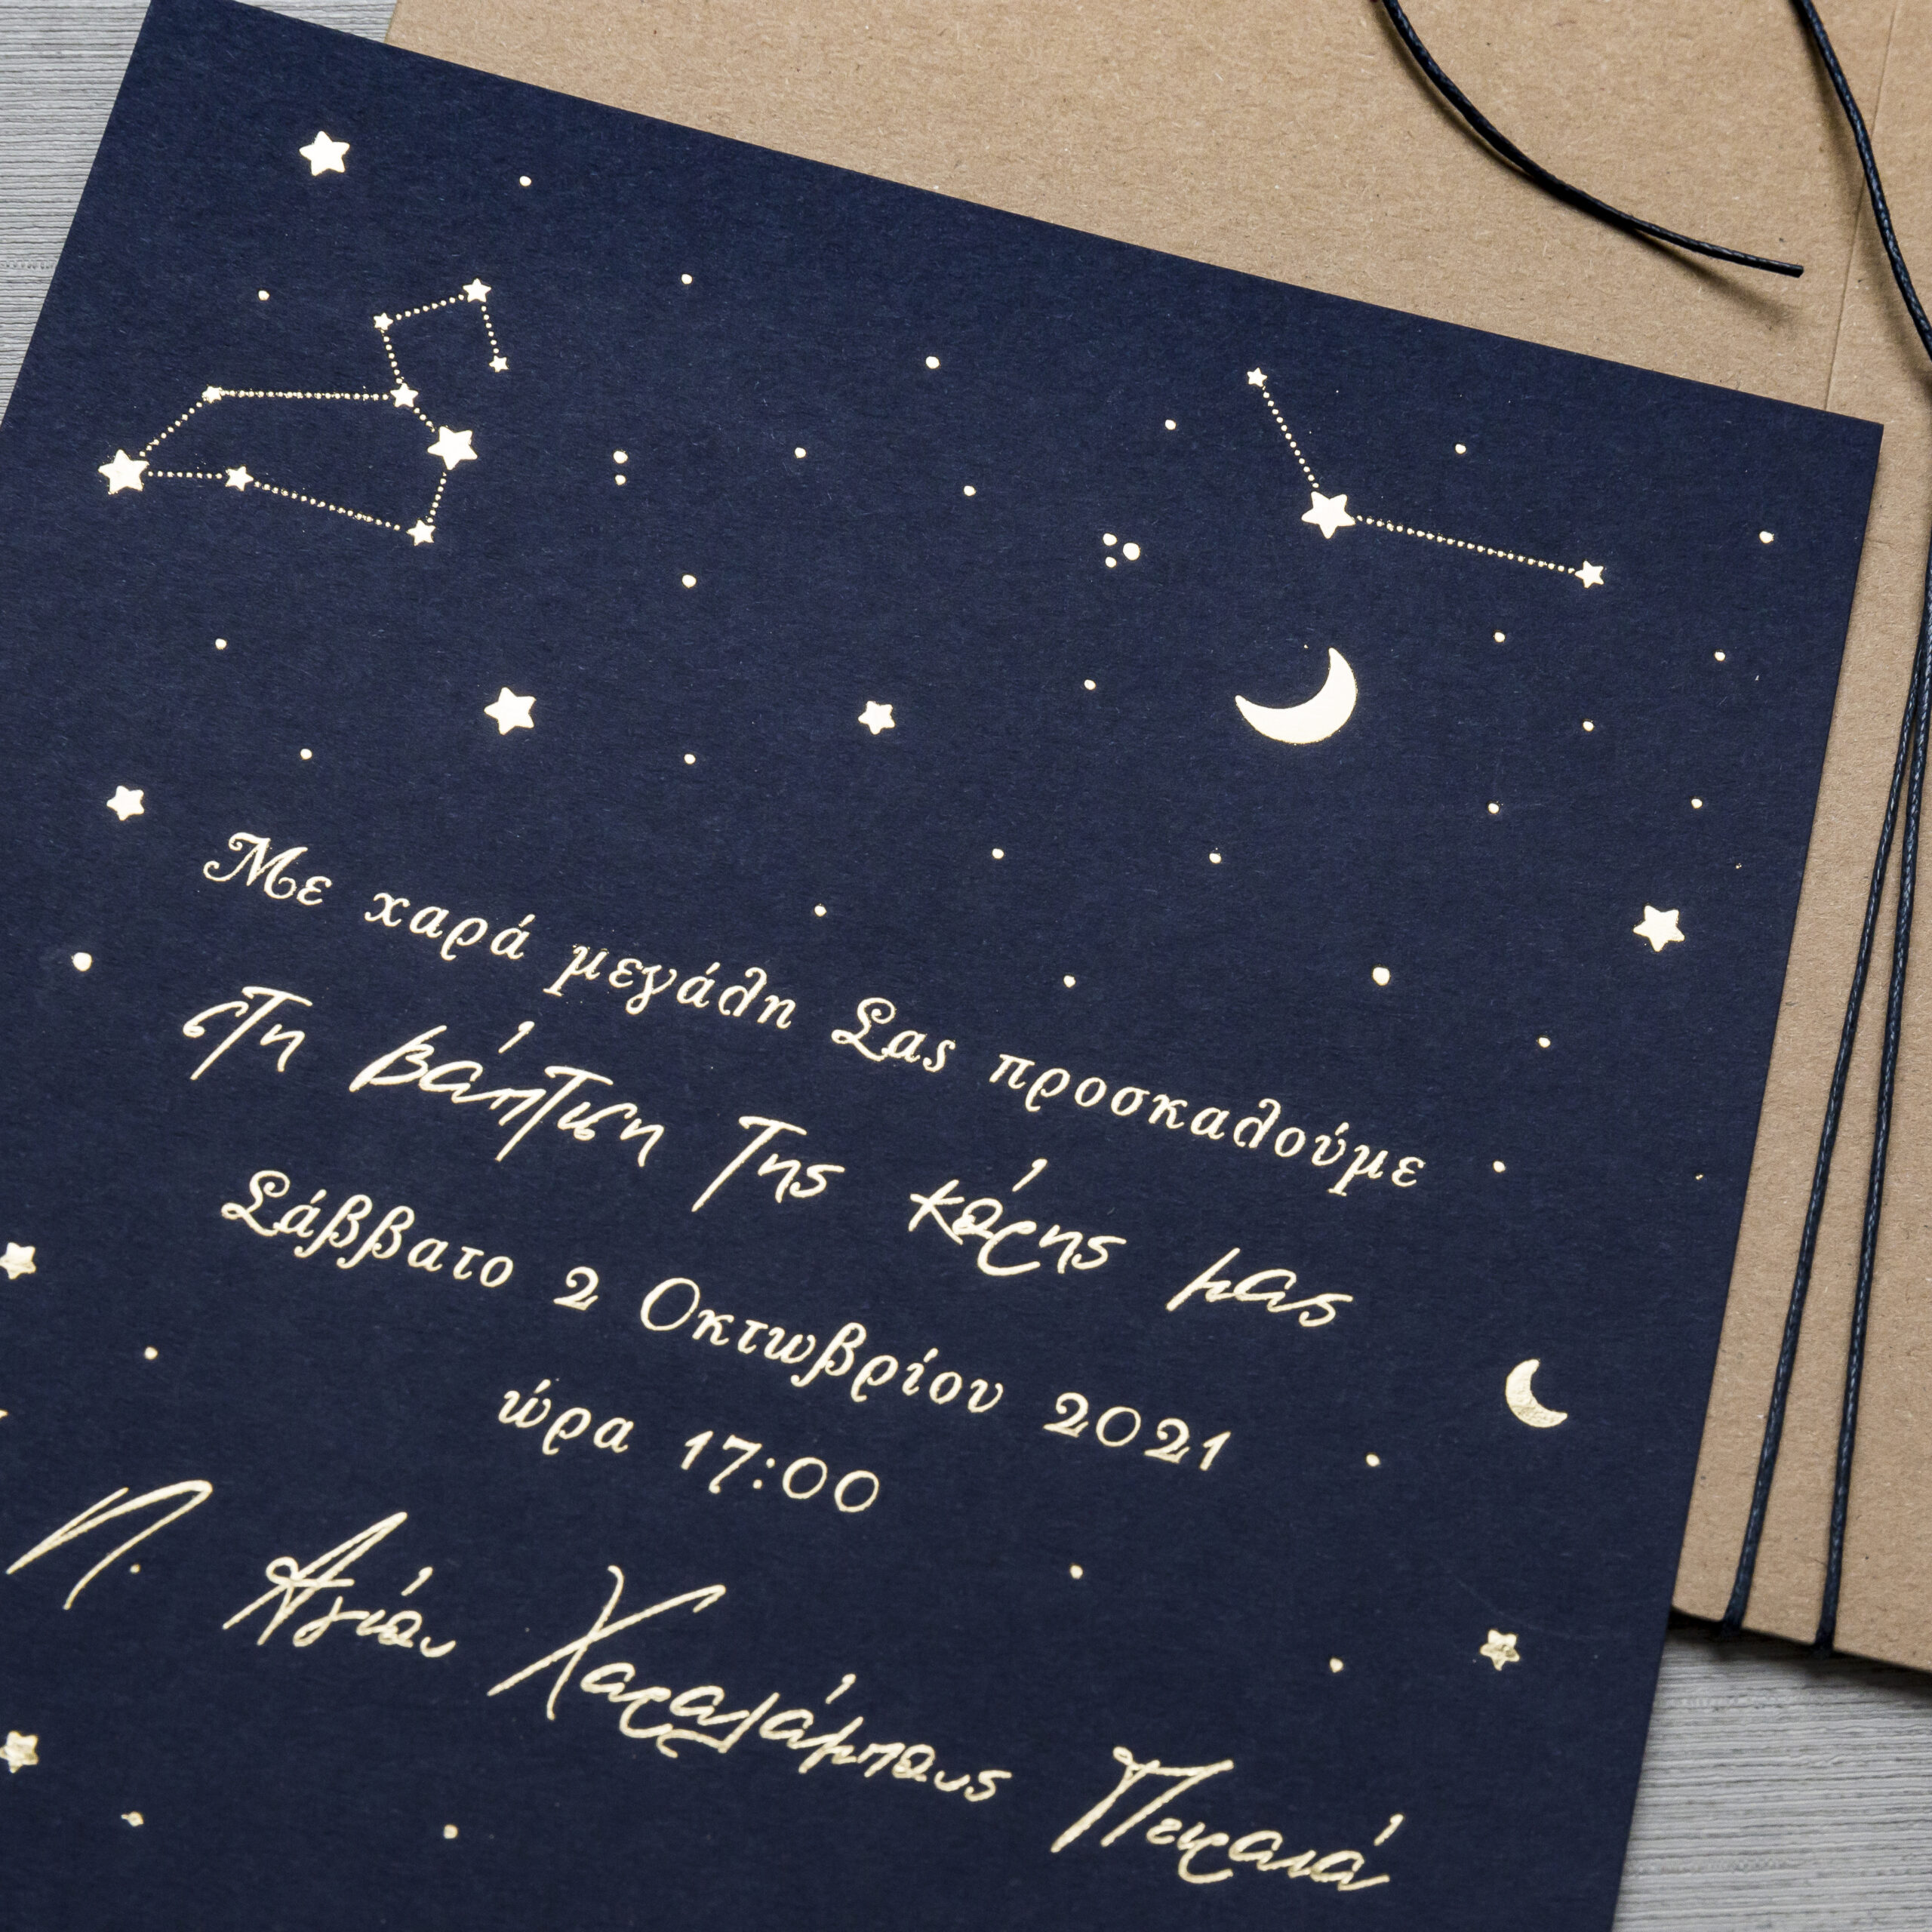 Με χαρά μεγάλη Σας προσκαλούμε
στη βάπτιση της κόρης μας
Σάββατο 2 Οκτωβρίου 2021
ώρα 17:00
Ν. Αγίου Χαραλάμπους Πειραιά